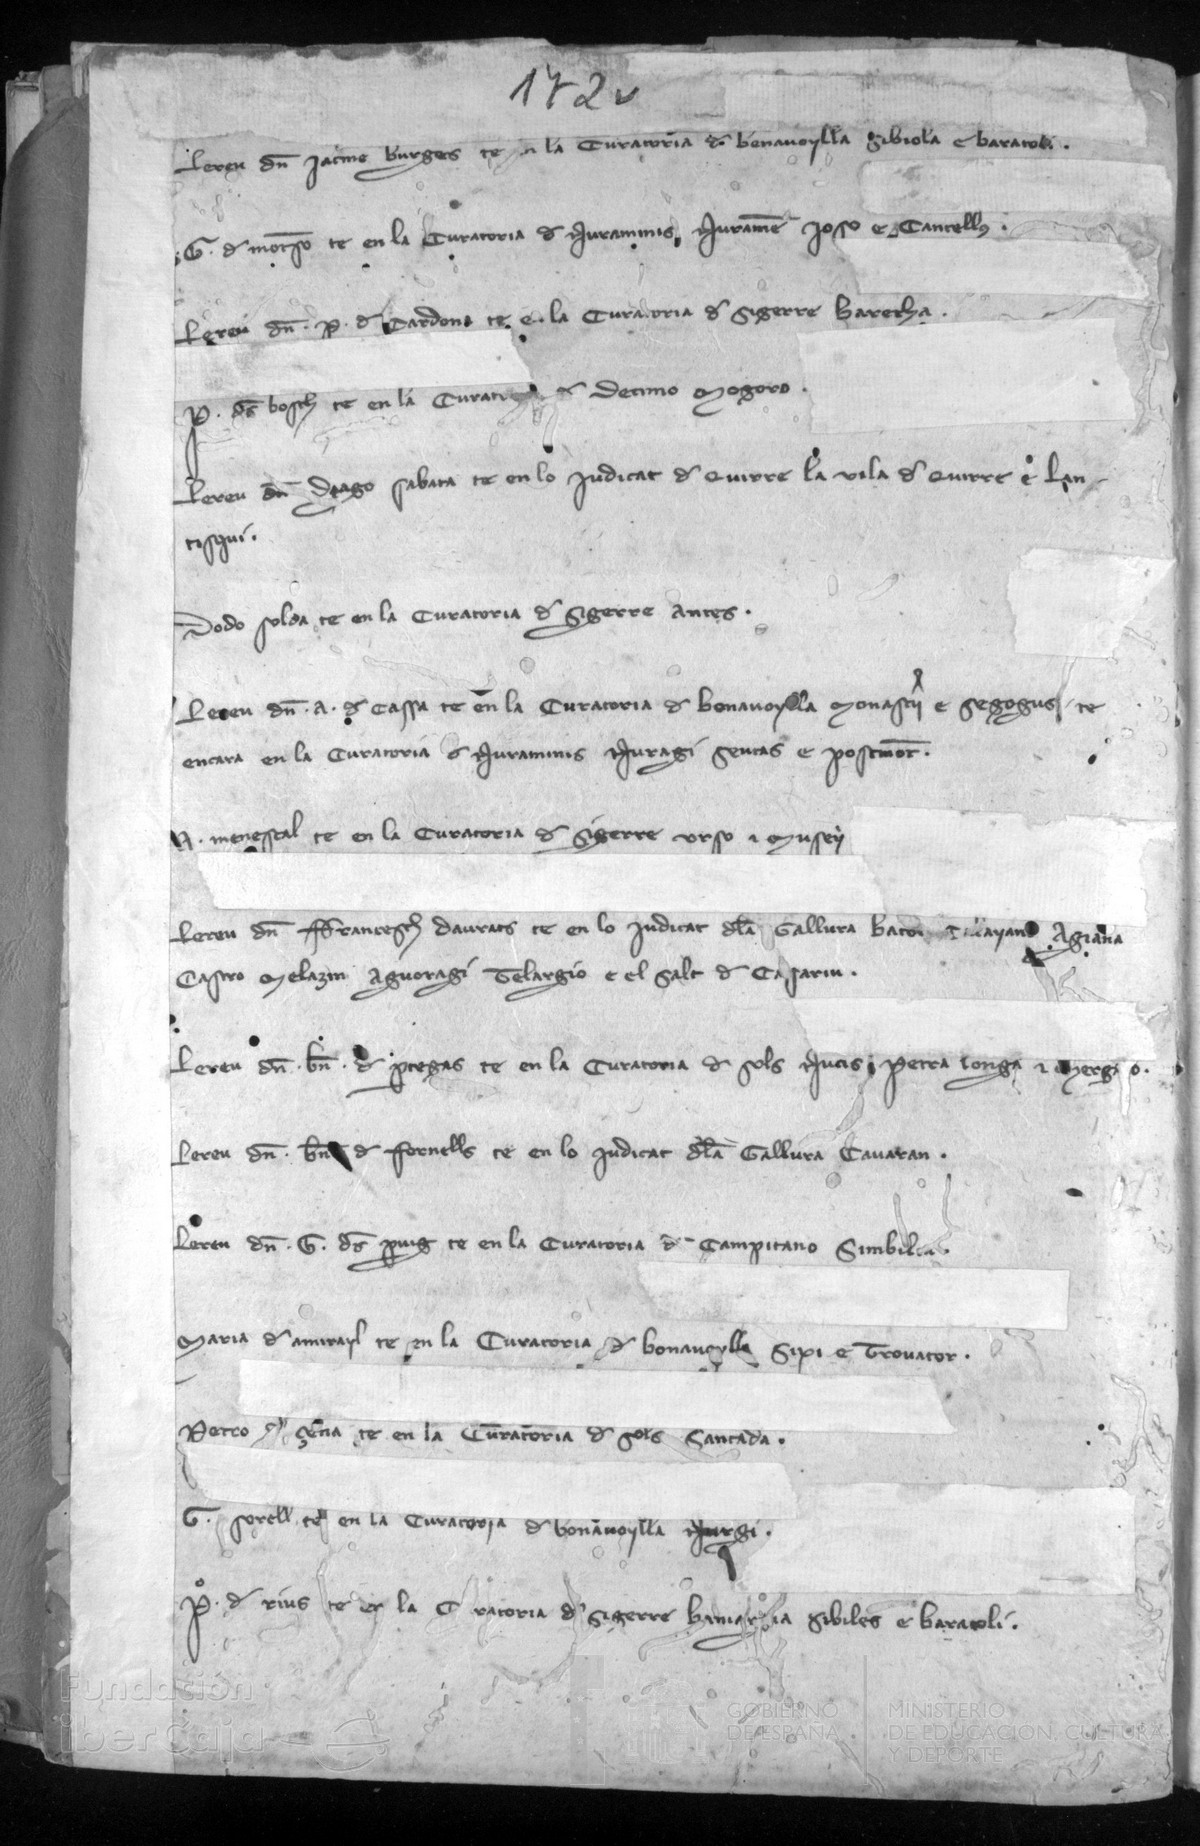 172v
Lereu dñ Jacme burges te en la Curatoria d bonauoylla Sibiola e baratoli.
G. d montso te en la Curatoria d Nuraminis Nuramē Joso e Cancellꝯ.
Lereu dñ. P. d Cardona te e la Curatoria d Sigerre Barecha.
P. ds bosch te en la Curatoria d Decimo Mogoro.
Lereu dñ Diago sabata te en lo Judicat d Quirre la vila d Quirre e Lan-
tisqui.
Dodo solda te en la Curatoria d Sigerre Antes.
Lereu dñ. A. d Cassa te en la Curatoria d bonauoylla Monastii e Segogus te
encara en la Curatoria d Nuraminis Nuragi Seucas e postmōt.
A. menescal te en la Curatoria d Sigerre Urso e Museii
Lereu dñ ffrancesch daurats te en lo Judicat dla Gallura bacor Agiana
Castro Melazin Aguoragi Telargio e el salt d Casariu.
Lereu dñ. bñ. d ptegas te en la Curatoria d sols Nucis petra longa e
Lereu dñ. bñ d fornells te en lo Judicat dla Gallura Cauaran.
Lereu dñ. G. ds puig te en la Curatoria d Campitano Simbilia.
Maria d amirayl te en la Curatoria d bonauoylla Sipi e Trouator.
Petro te en la Curatoria d sols Santada.
G. sorell te en la Curatoria d bonauoylla Nurgi.
P. d rius te en la Curatoria d Sigerre Sibiles e baratoli.
Fundación
iberCaja
GOBIERNO
DE ESPAÑA
MINISTERIO
DE EDUCACIÓN, CULTURA
Y DEPORTE